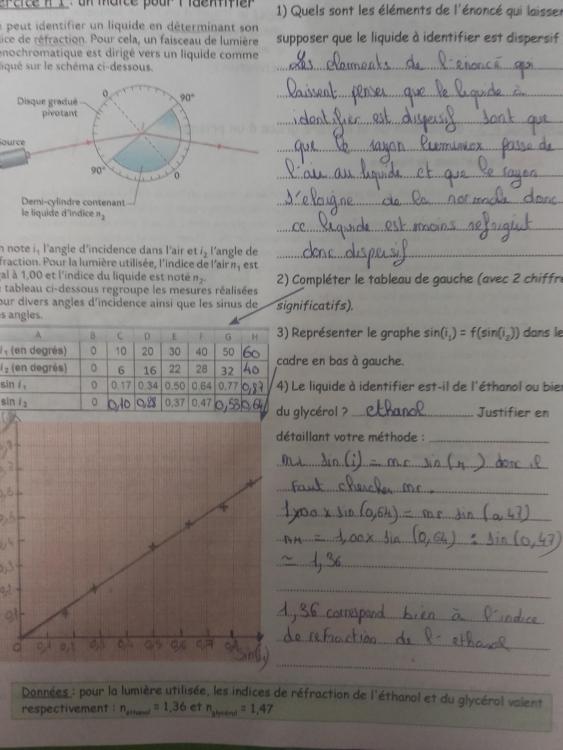 ercice n°1 : un indice pour l'identifier
peut identifier un liquide en déterminant son
ice de réfraction. Pour cela, un faisceau de lumière
onochromatique est dirigé vers un liquide comme
iqué sur le schéma ci-dessous.
0
90°
Disque gradué
pivotant
Source
90°
0
Demi-cylindre contenant
le liquide d'indice n2
n note i1 l'angle d'incidence dans l'air et i2 l'angle de
fraction. Pour la lumière utilisée, l'indice de l'air n1 est
al à 1,00 et l'indice du liquide est noté n2.
tableau ci-dessous regroupe les mesures réalisées
our divers angles d'incidence ainsi que les sinus de
s angles.
A B C D E F G H
i1 (en degrés) 0 10 20 30 40 50 60
i2 (en degrés) 0 6 16 22 28 32 40
sin i1 0 0,17 0,34 0,50 0,64 0,77 0,87
sin i2 0 0,10 0,28 0,37 0,47 0,53 0,64
0 0,1 0,2 0,3 0,4 0,5 0,6 0,7 0,8
sin(i1)
1) Quels sont les éléments de l'énoncé qui laisser
supposer que le liquide à identifier est dispersif
Les elements de l'énoncé qui
laissent penser que le liquide à
identifier est dispersif sont que
que le rayon lumineux passe de
l'air au liquide et que le rayon
s'eloigne de la normale donc
ce liquide est moins refrigent
donc dispersif
2) Compléter le tableau de gauche (avec 2 chiffre
significatifs).
3) Représenter le graphe sin(i1) = f(sin(i2)) dans le
cadre en bas à gauche.
4) Le liquide à identifier est-il de l'éthanol ou bien
du glycérol ? ethanol Justifier en
détaillant votre méthode :
sin(i) = sin(r) donc il
faut chercher
1,00 x sin(0,64) = sin(0,47)
= 1,00 x sin(0,64) : sin(0,47)
≈ 1,36
1,36 correspond bien à l'indice
de refraction de l'ethanol
Données : pour la lumière utilisée, les indices de réfraction de l'éthanol et du glycérol valent
respectivement : néthanol = 1,36 et nglycérol = 1,47